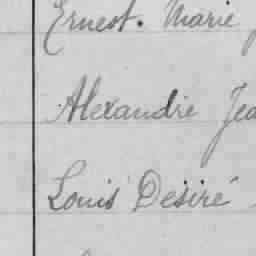 Ernest. Marie
Alexandre Jea
Louis Désiré